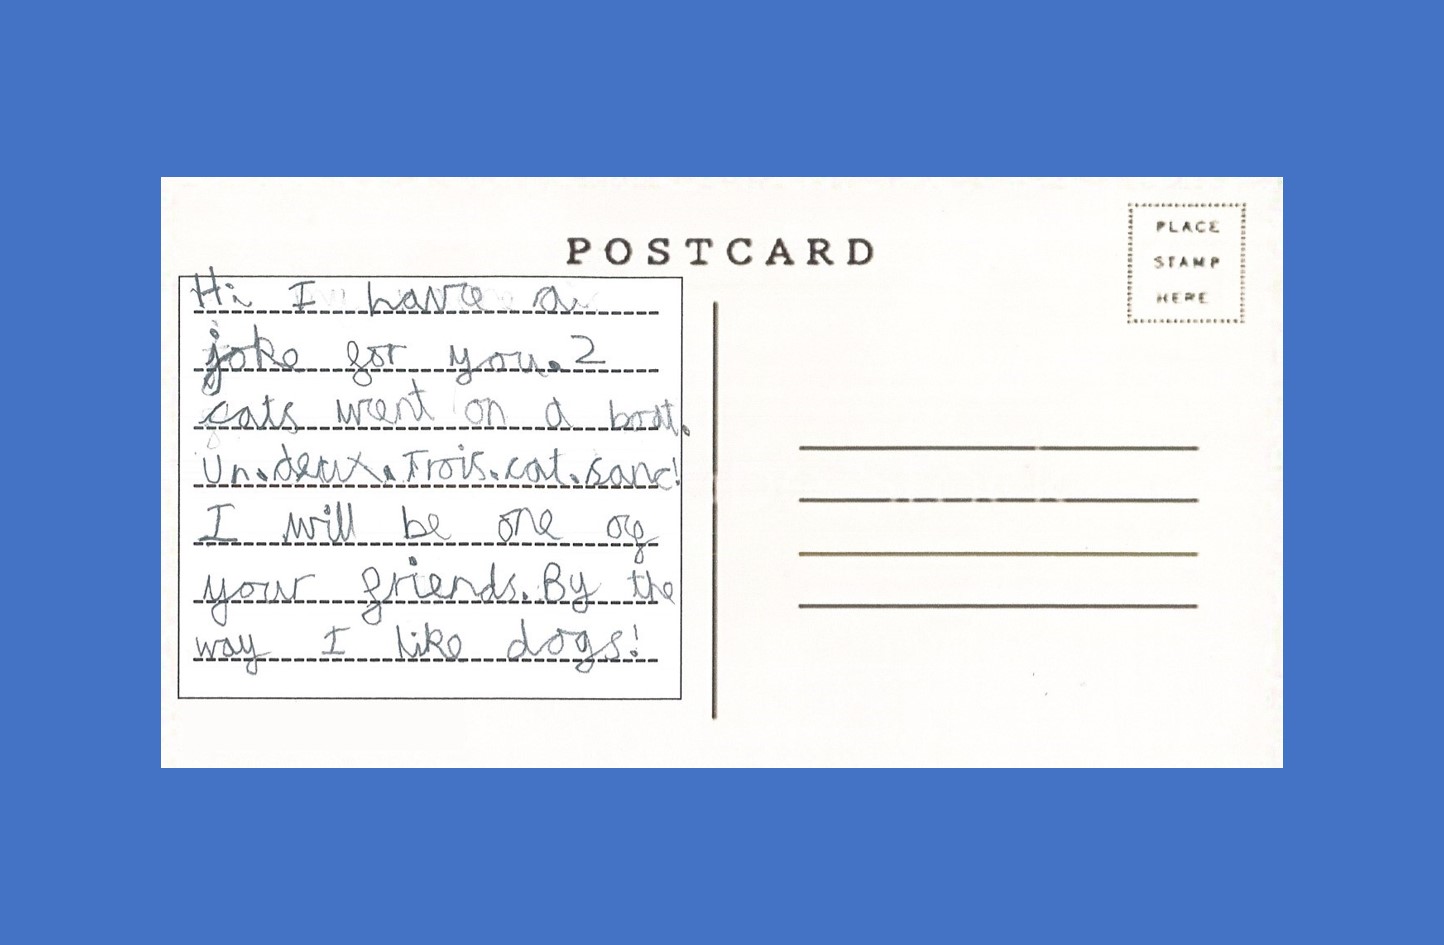 POSTCARD
PLACE
STAMP
HERE
Hi I have a
joke for you. 2
cats went on a boat.
Un.deux.Trois.cat.sanc!
I will be one of
your friends. By the
way I like dogs!